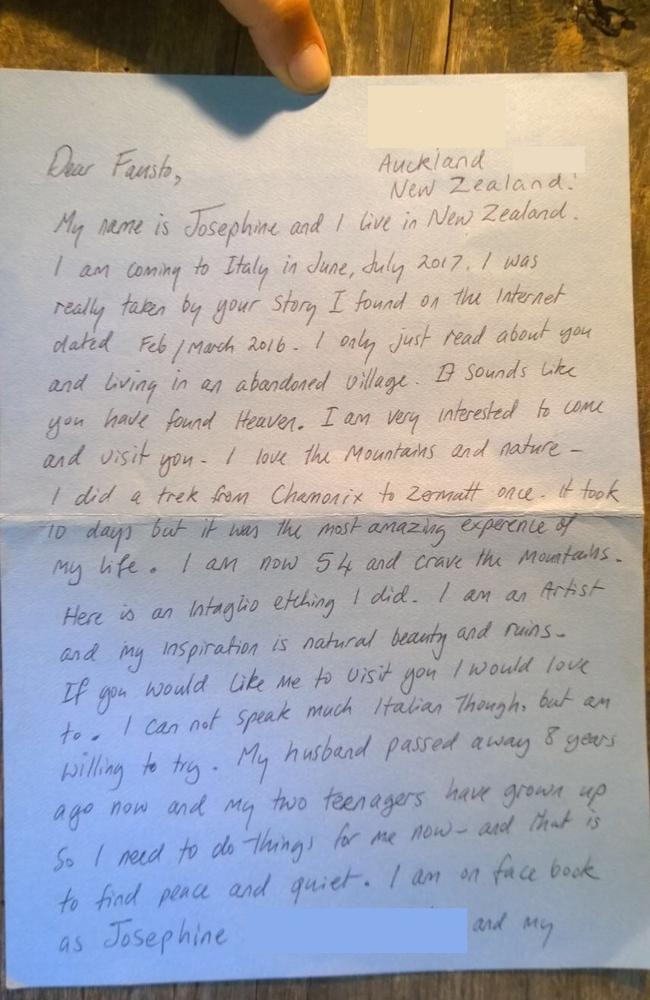 Auckland
Dear Fausto,
New Zealand.
My name is Josephine and I live in New Zealand.
I am coming to Italy in June, July 2017. I was
really taken by your Story I found on the Internet
dated Feb/March 2016. I only just read about you
and living in an abandoned village. It sounds like
you have found Heaven. I am very interested to come
and visit you. I love the Mountains and nature -
I did a trek from Chamonix to Zermatt once. It took
10 days but it was the most amazing experence of
my life. I am now 54 and crave the Mountains.
Here is an Intaglio etching I did. I am an Artist
and my Inspiration is natural beauty and ruins.
If you would like me to visit you I would love
to. I can not speak much Italian Though, but am
willing to try. My husband passed away 8 years
ago now and my two teenagers have grown up
So I need to do Things for me now - and That is
to find peace and quiet. I am on face book
as Josephine and my